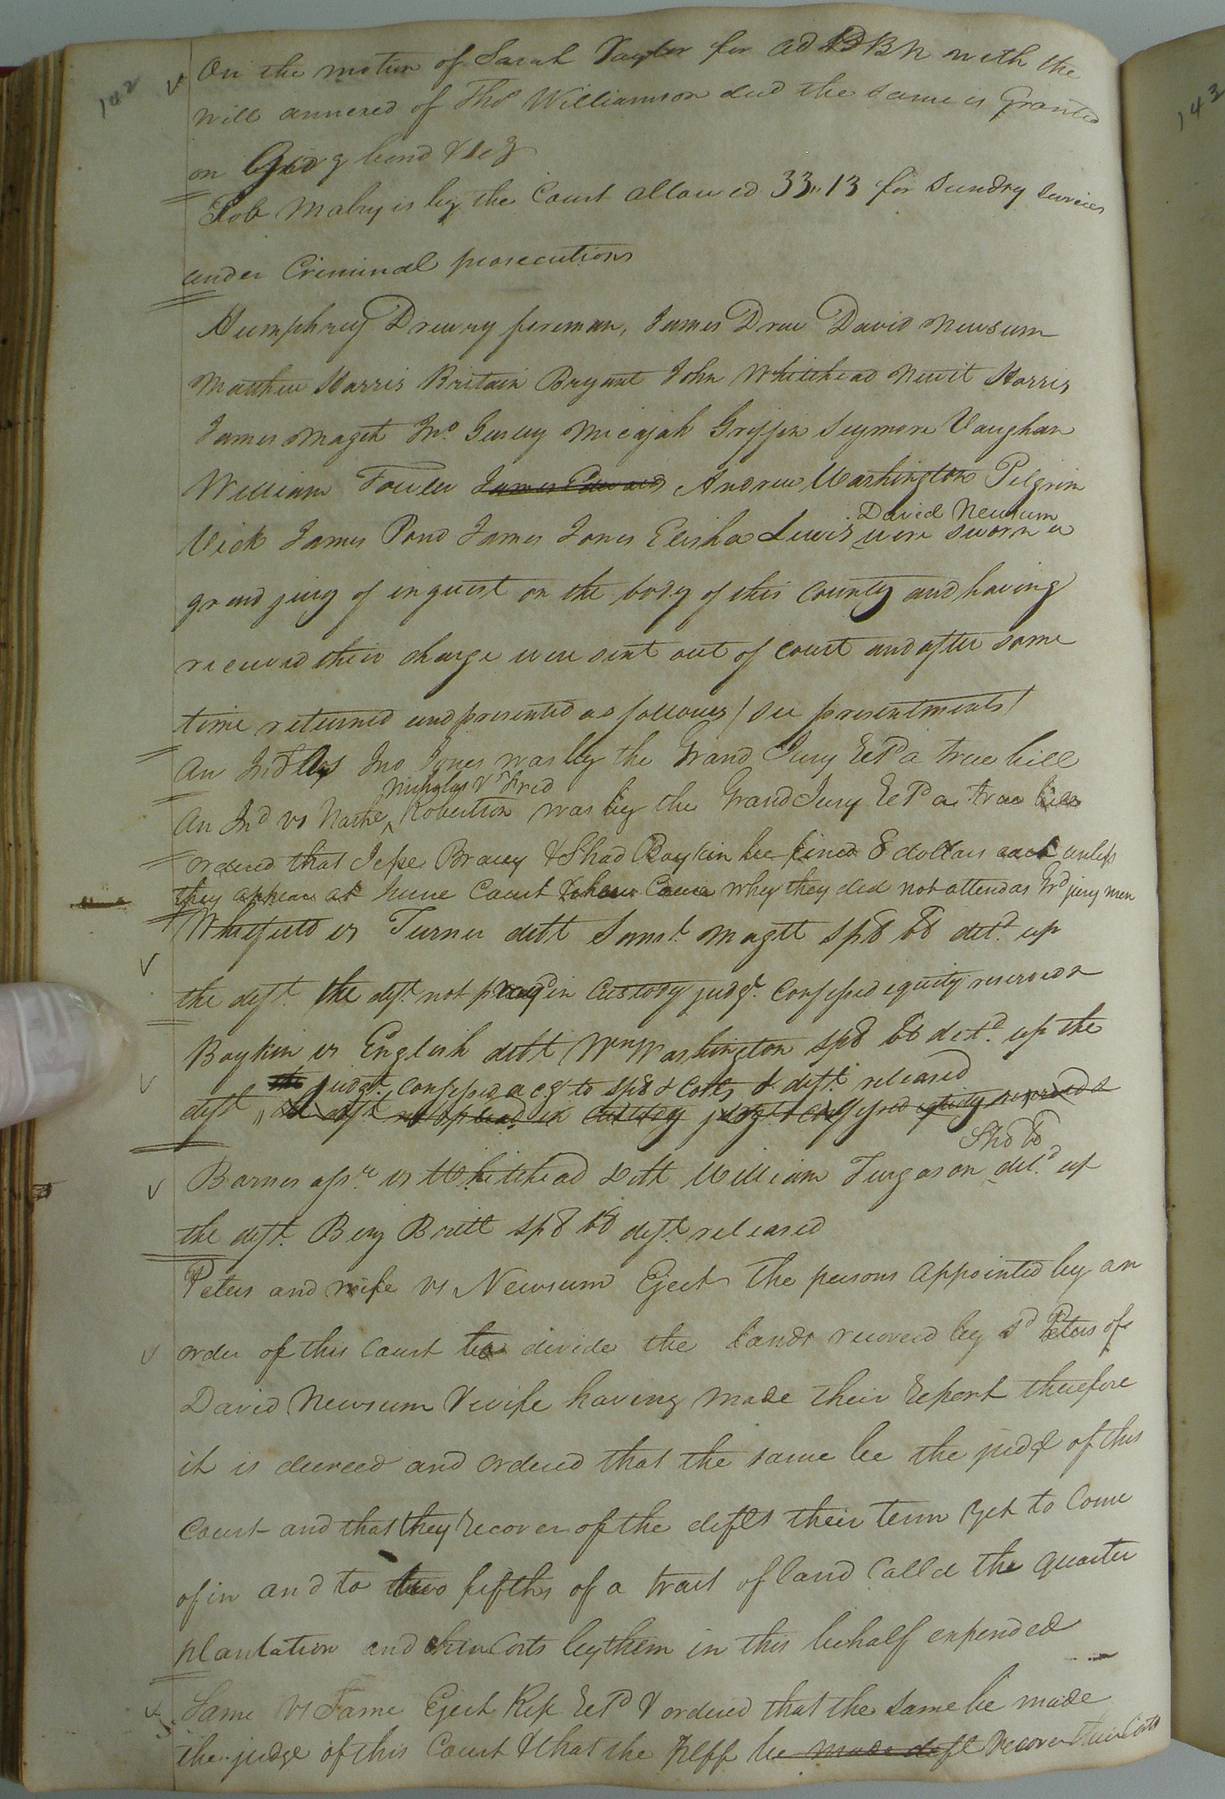 142
143
On the motion of Sarah Taylor for ad DBN with the
will annexed of Thos Williamson decd the same is Granted
on Givg bond & seg
Rob Mabry is by the Court allowed 33.13 for sundry services
under Criminal prosecutions
Humphrey Drewry foreman, James Drew David Newsum
Matthew Harris Britain Bryant John Whitehead Newit Harris
James Maget Jno. Gurley Micajah Griffin Seymore Vaughan
William Fowler James Edwards Andrew Washington Pilgrim
David Newsum
Vick James Pond James Jones Elisha Lewis were sworn a
grand jury of inquest on the body of this County and having
received their charge were sent out of court and after some
time returned and presented as follows / see presentments /
An Indt vs Jno Jones was by the Grand Jury Retd a true bill
Nicholas & Fred
An Ind vs Robertson was by the Grand Jury Retd a true bill
ordered that Jesse Bracey & Shad Boykin be fined 8 dollars each unless
they appear at June Court & shew Cause why they did not attend as Gd jury men
Whitfield vs Turner debt Saml. Magett sp8 b8 deld. up
the deft. the deft not prayd in Custody judgt. confessed equity reserved
Boykin vs English debt Wm Washington sp8 b8 deld. up the
the judgt. confessed acgt to sp8 & costs & deft. released
deft the deft not prayed in Custody judgt confessed equity reserved
Sp8 b8
Barnes asse. vs Whitehead debt William Furgason deld. up
the deft. Benj Britt sp8 b8 deft. released
Peters and wife vs Newsum Eject The persons appointed by an
order of this Court to divide the lands recoverd by sd Peters of
David Newsum & wife having made their Report therefore
it is decreed and ordered that the same be the judgt of this
Court and that they Recover of the defts their term yet to Come
of in and to two fifths of a tract of land Calld the quarter
plantation and their Costs by them in this behalf expended
Same vs Same Eject Rep Retd & ordered that the same be made
the judge of this Court & that the plff be made deft Recover their Costs